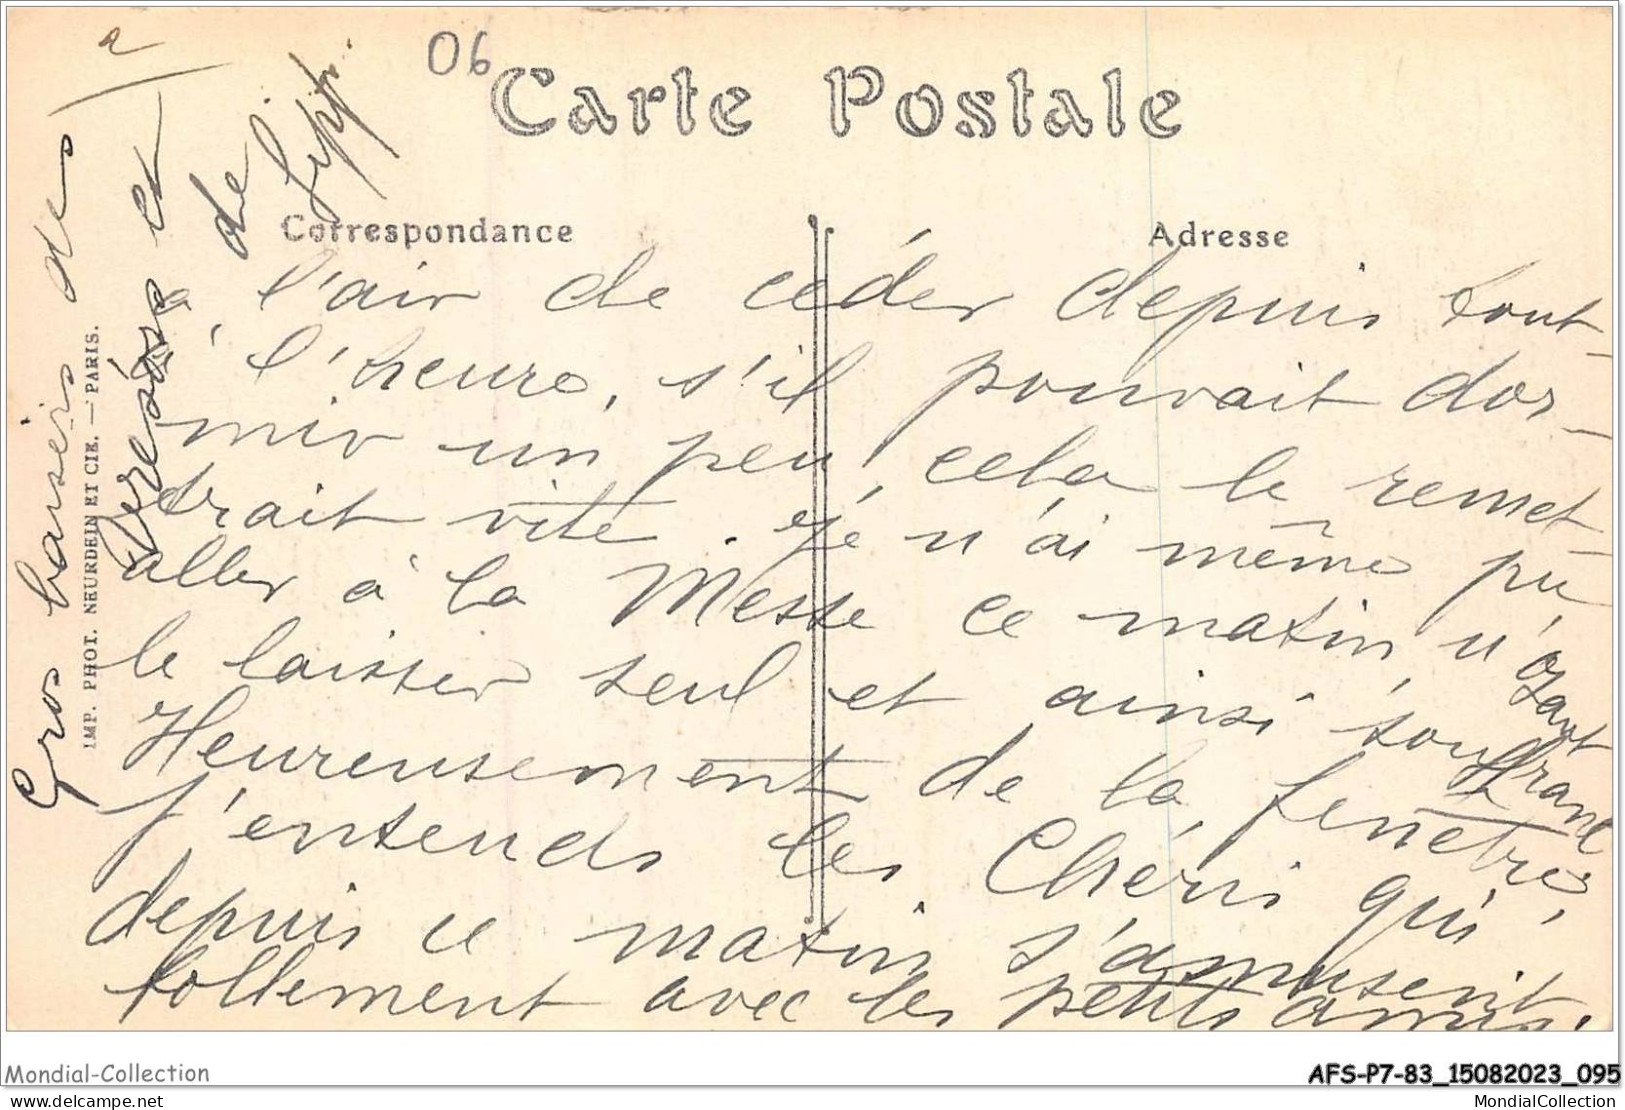 2
06
Carte Postale
Correspondance
Adresse
a l'air de céder depuis tout-
à l'heure, s'il pouvait dor-
mir un peu, cela le remet-
trait vite. Je n'ai même pu
aller à la Messe ce matin, n'osant
le laisser seul et ainsi souffrant
Heureusement de la fenêtre,
j'entends les Chéris qui
depuis ce matin s'amusent
follement avec les petits amis.
Gros baisers des
et
de
IMP. PHOT. NEURDEIN ET CIE. — PARIS.
Mondial-Collection
AFS-P7-83_15082023_095
delcampe.net
MondialCollection